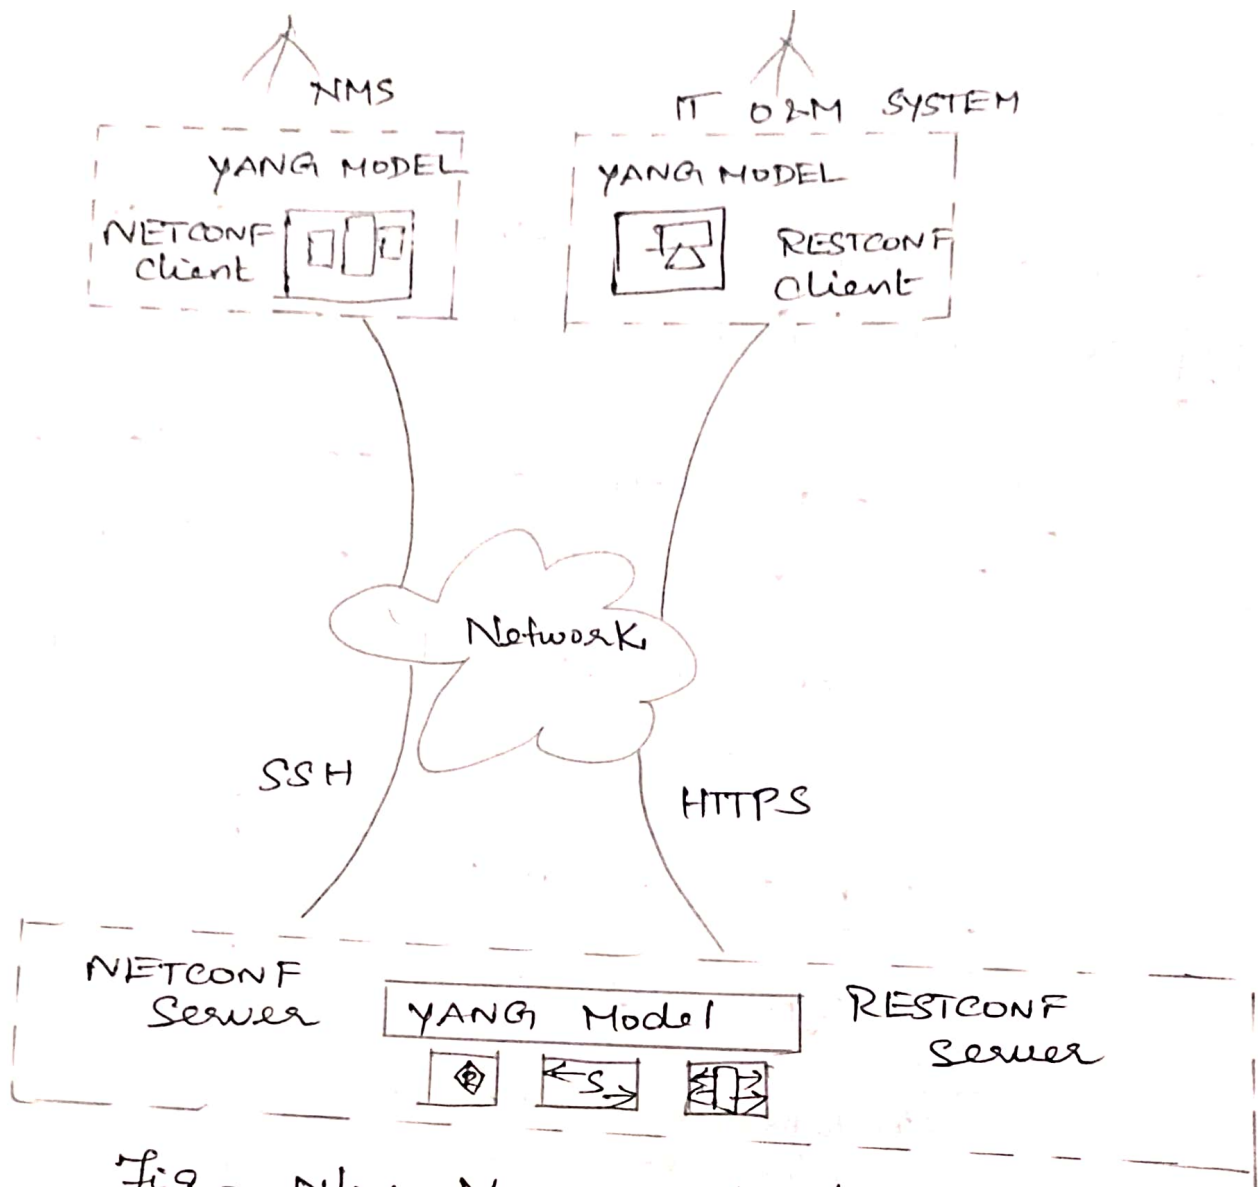 NMS
IT O&M SYSTEM
YANG MODEL
NETCONF
Client
YANG MODEL
RESTCONF
Client
Network
SSH
HTTPS
NETCONF
Server
YANG Model
RESTCONF
Server
R
S
Fig